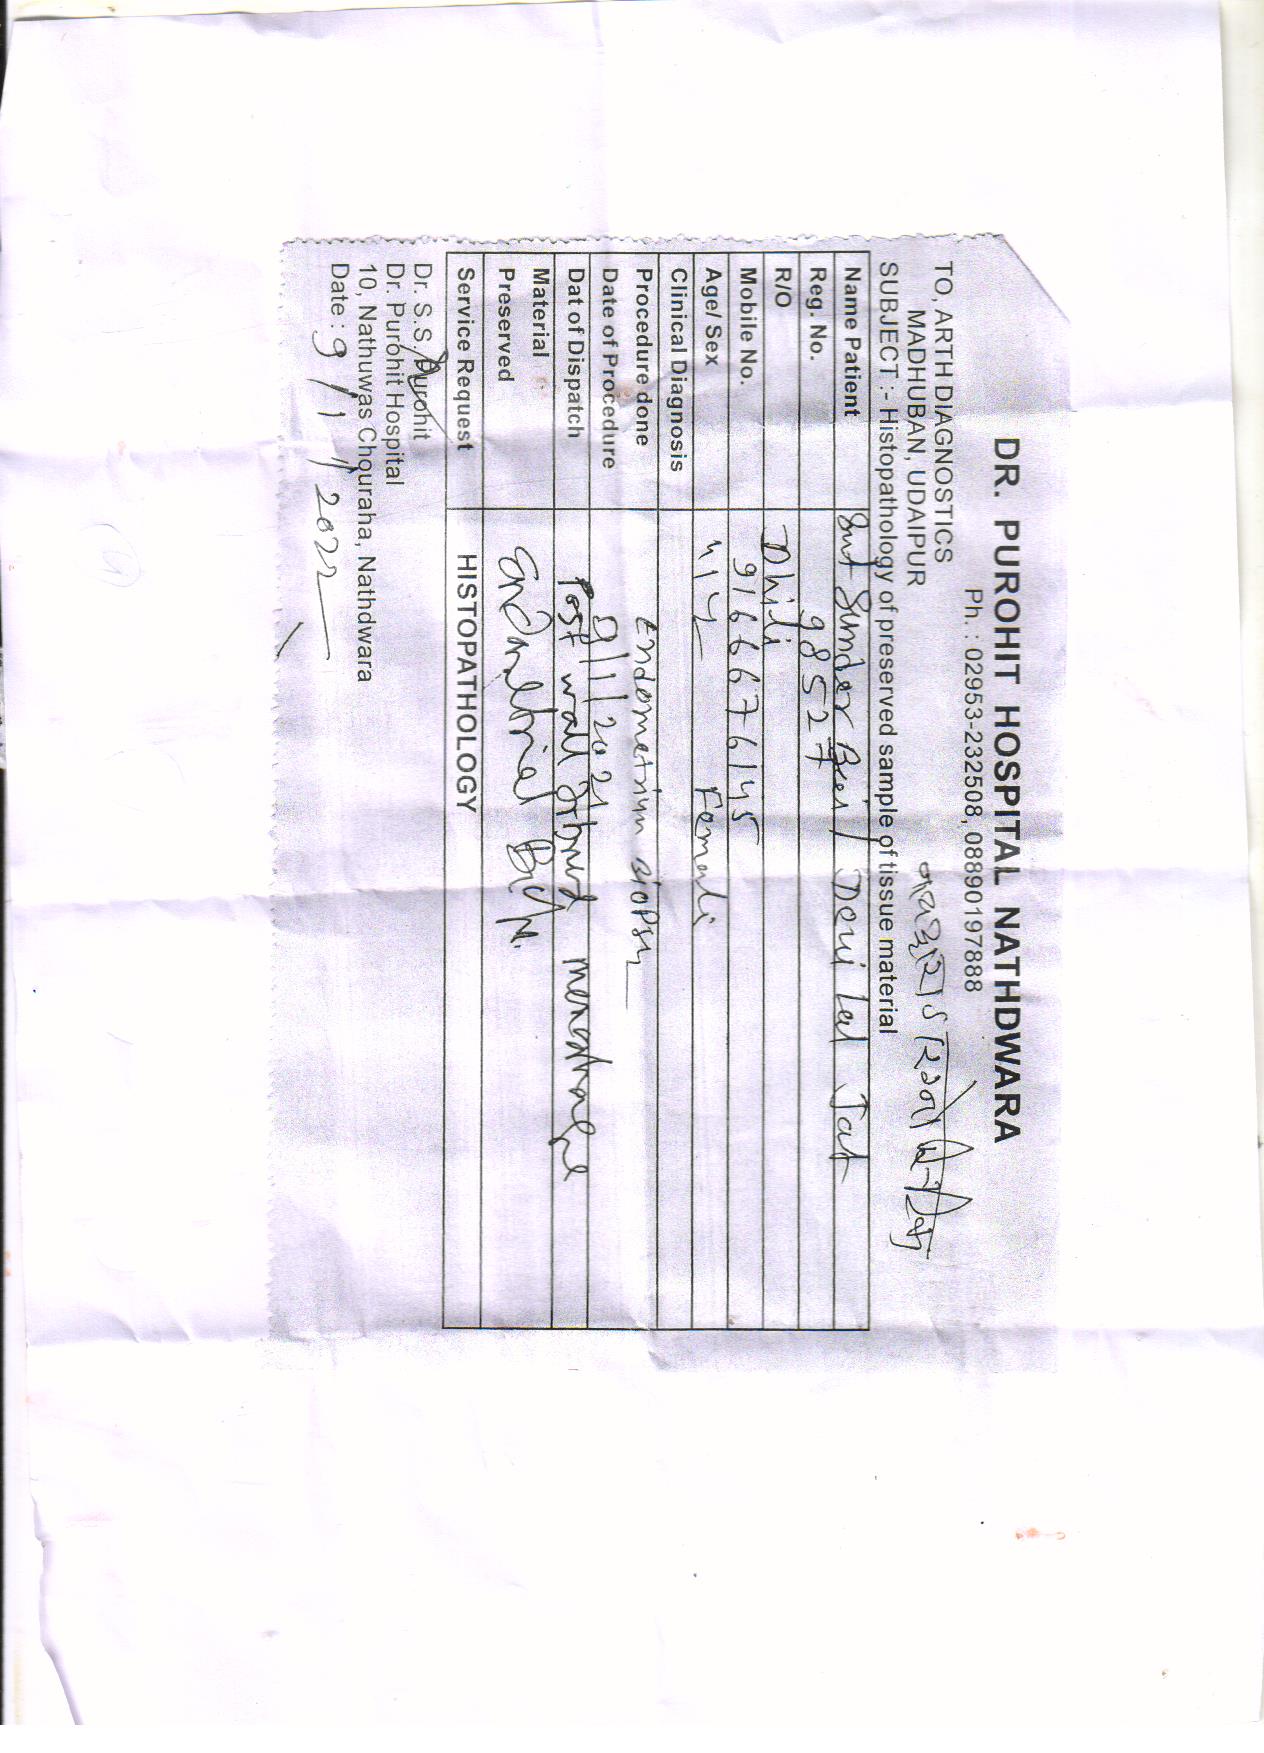 DR. PUROHIT HOSPITAL NATHDWARA
Ph. : 02953-232508, 08890197888
TO, ARTH DIAGNOSTICS
MADHUBAN, UDAIPUR
SUBJECT :- Histopathology of preserved sample of tissue material
Name Patient Smt Sunder Devi Lal Jat
Reg. No. 98527
R/O Dhili
Mobile No. 9166676145
Age/ Sex 41y Female
Clinical Diagnosis
Procedure done Endometrium Biopsy
Date of Procedure 9/1/2021
Dat of Dispatch Post wall
Material
Preserved Endometrial
Service Request HISTOPATHOLOGY
Dr. S.S. Purohit
Dr. Purohit Hospital
10, Nathuwas Chouraha, Nathdwara
Date : 9/1/2022